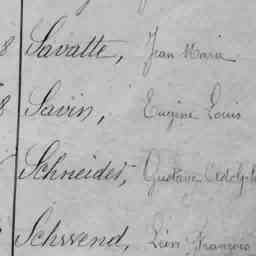 8 Savatte, Jean Marie
8 Savin, Eugène Louis
Schneider, Gustave Adolph
Schwend, Léon François